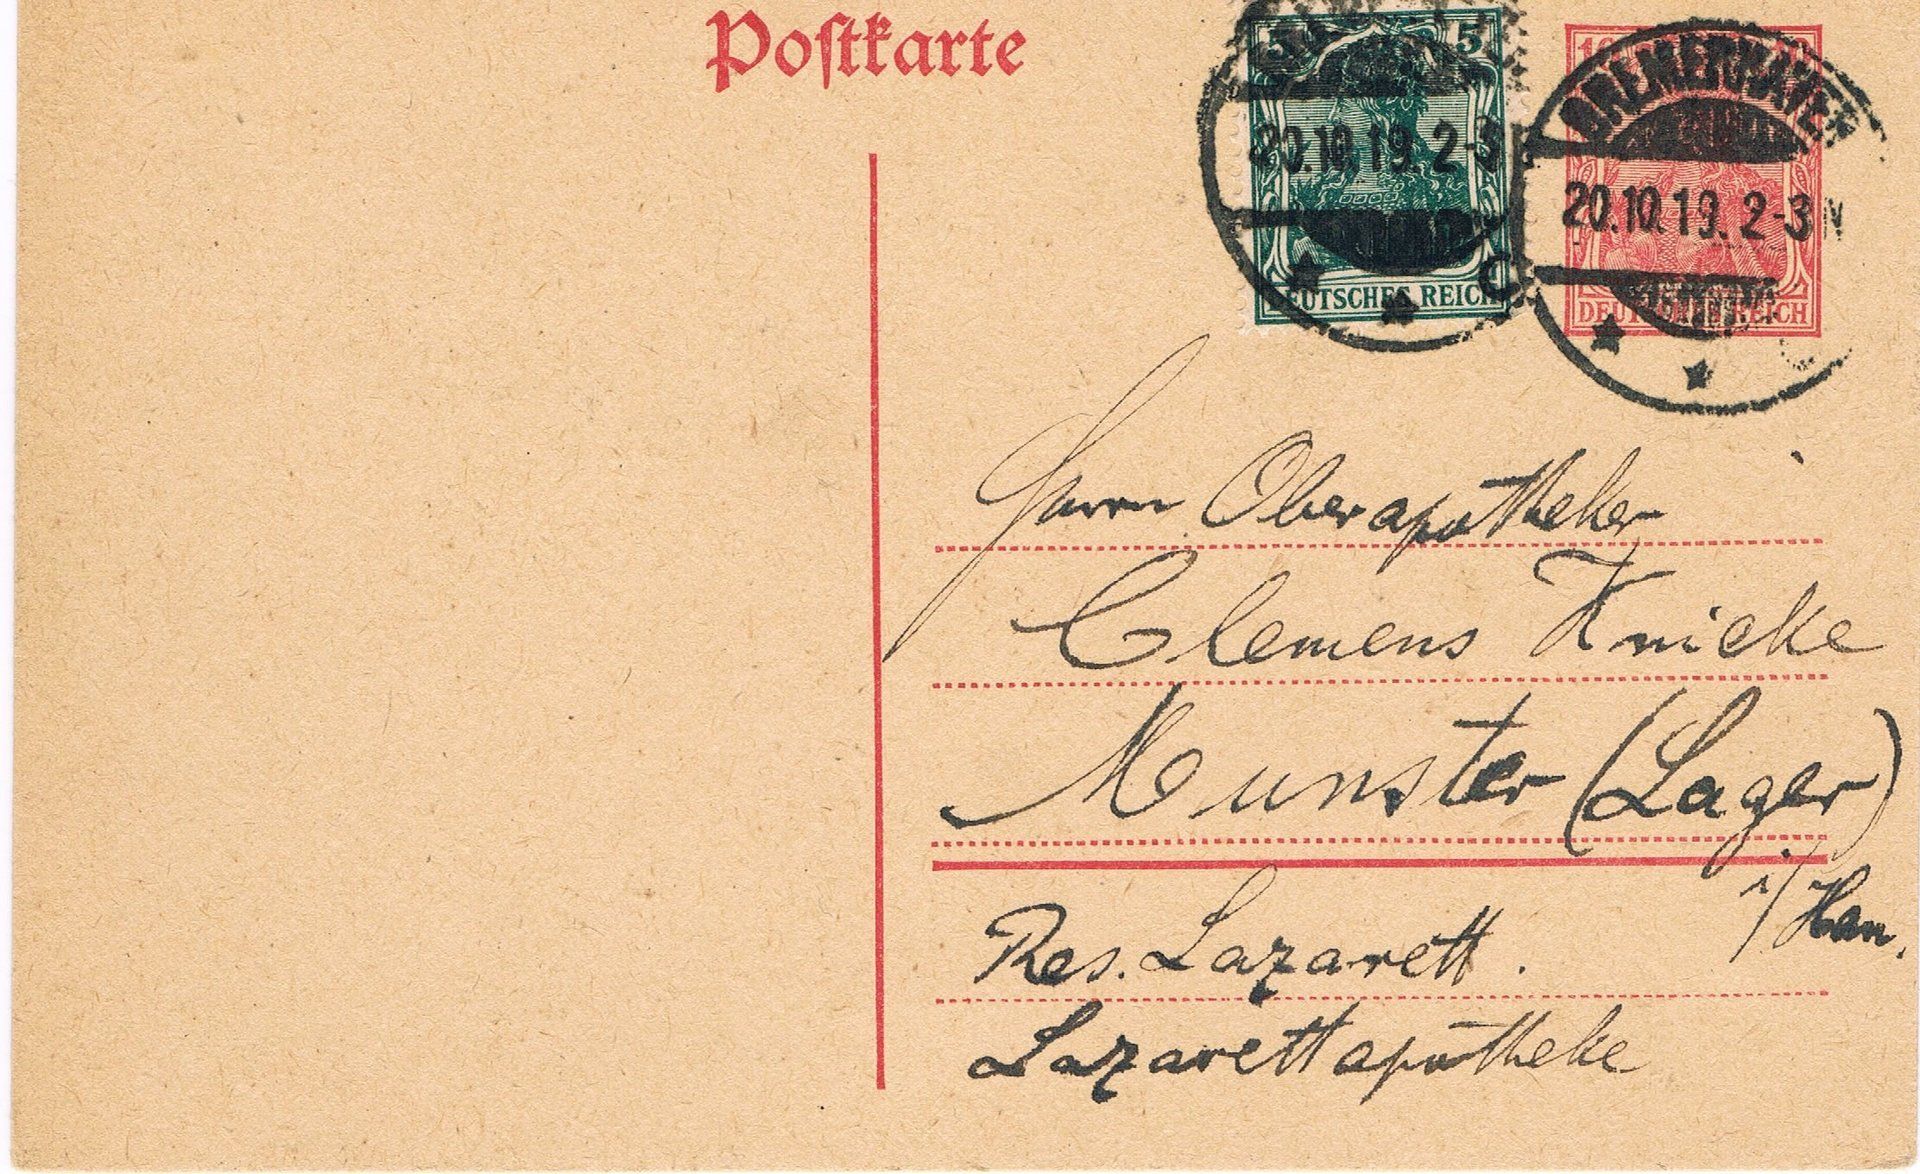 Postkarte
5 5
DEUTSCHES REICH
20.10.19. 2-3
C
10
BREMERHAVEN
20.10.19. 2-3 N
DEUTSCHES REICH
Herrn Oberapotheker
Clemens Knicke
Munster (Lager)
i/Han.
Res. Lazarett.
Lazarettapotheke